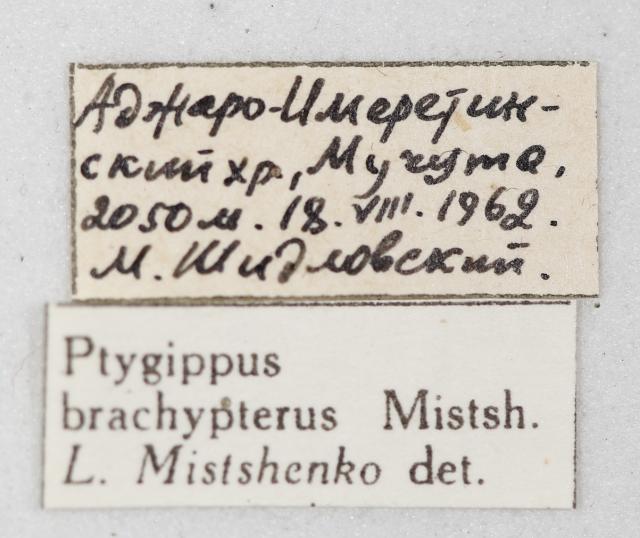 Аджаро-Имеретин-
ский хр., Мучута,
2050 м. 18. VIII. 1962.
М. Шидловский.
Ptygippus
brachypterus Mistsh.
L. Mistshenko det.